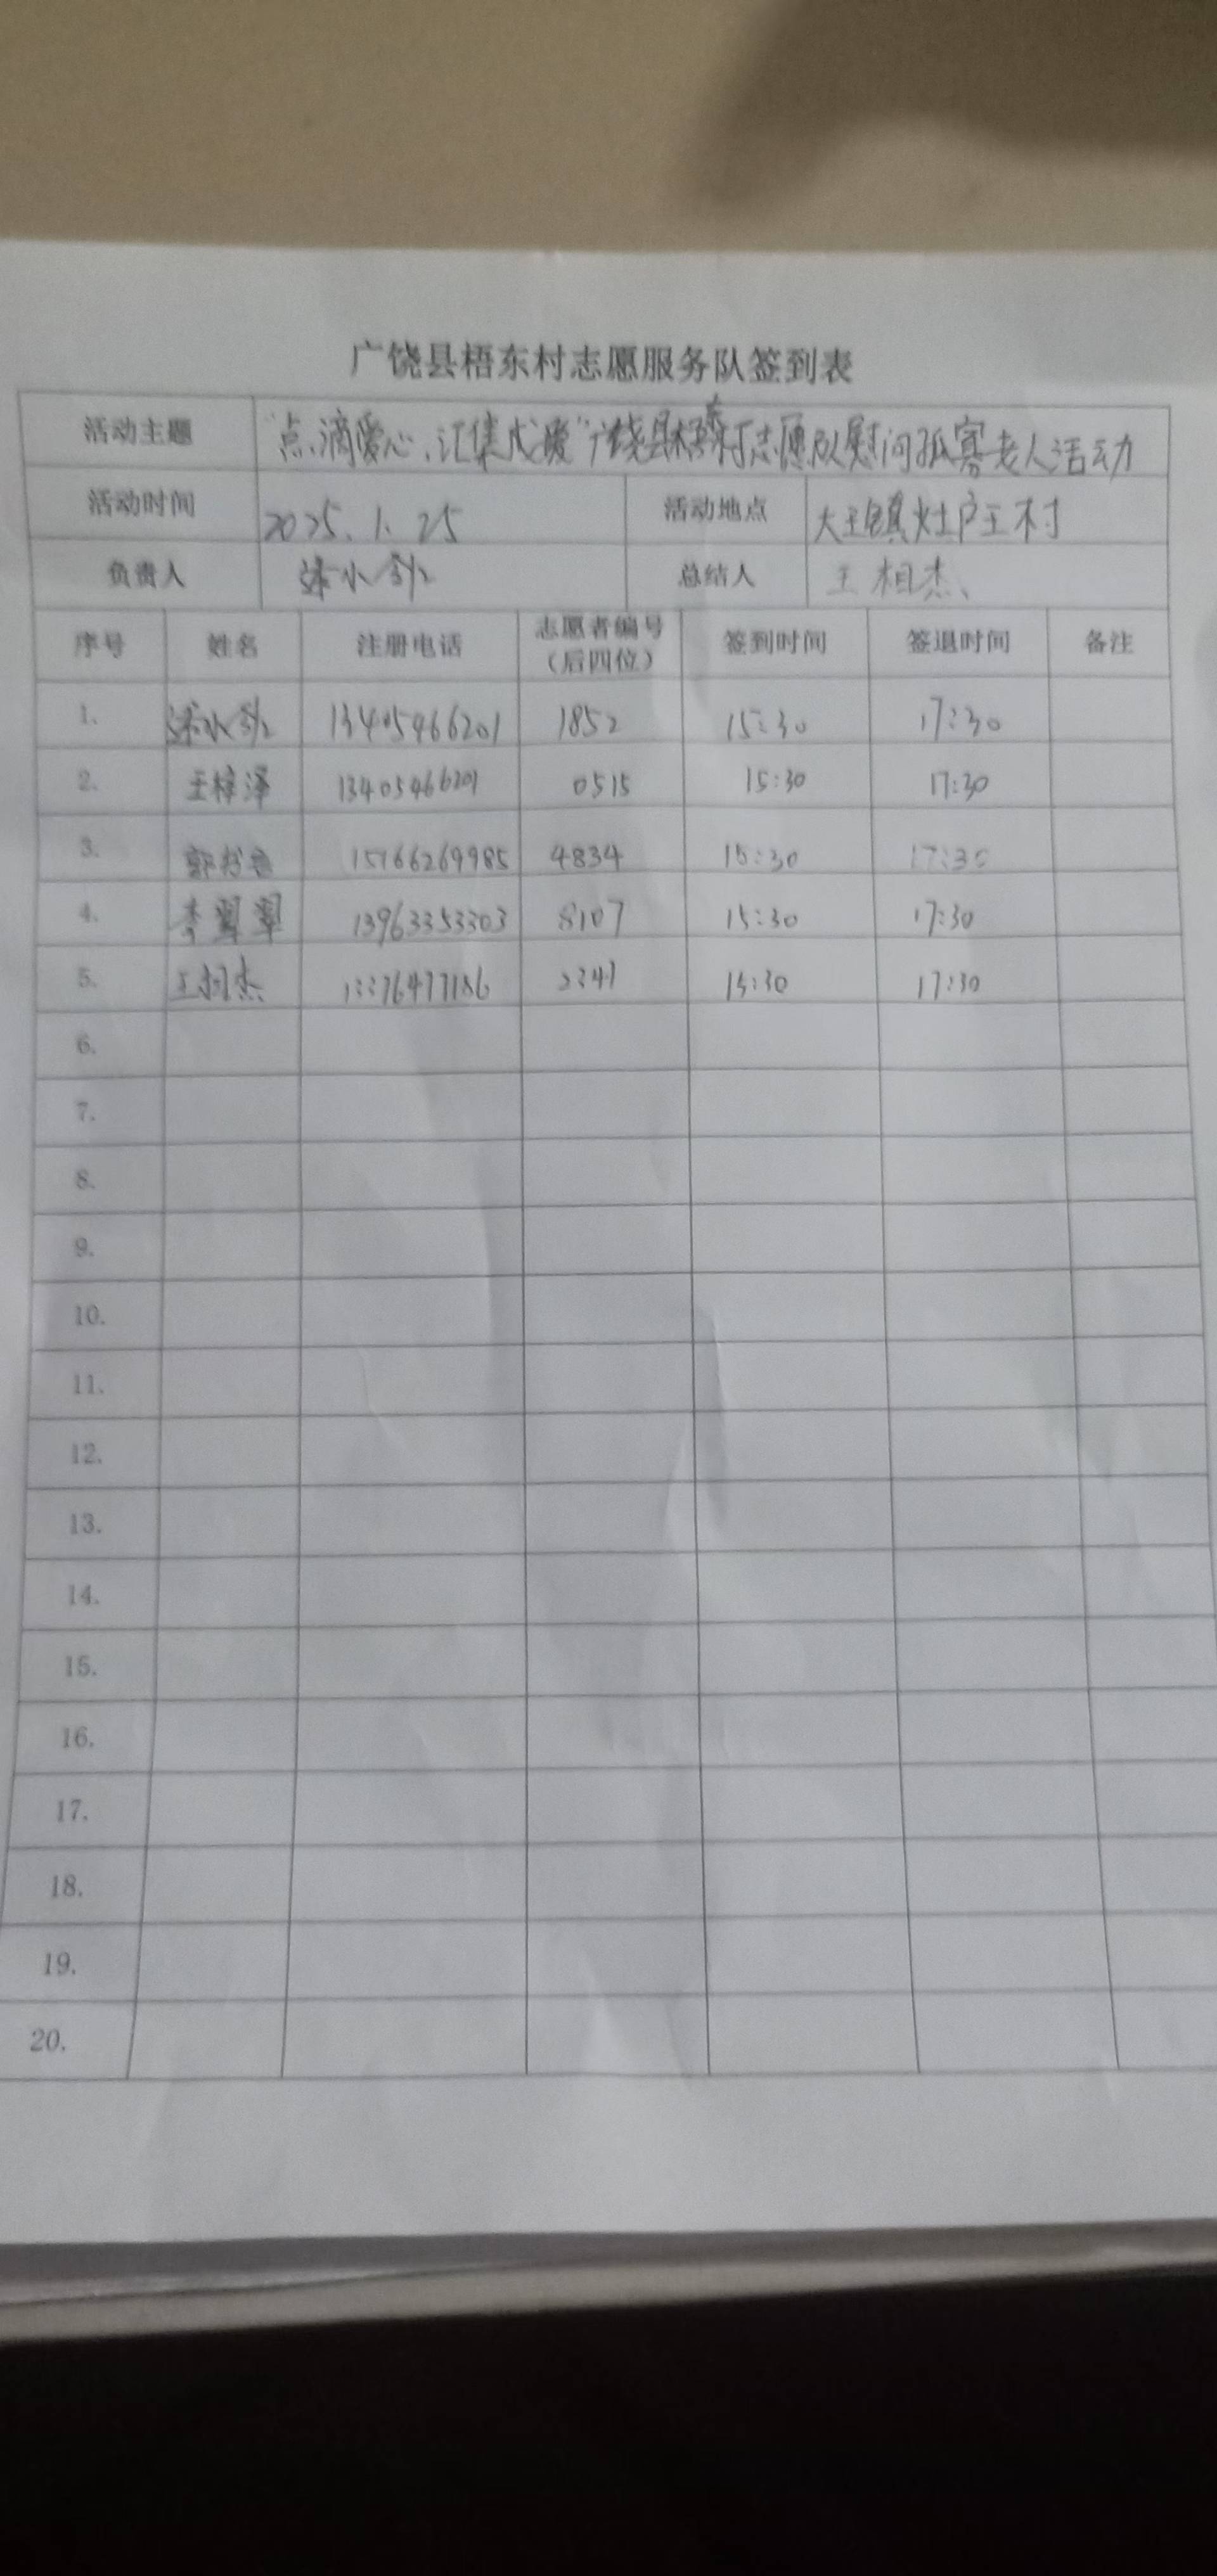 广饶县梧东村志愿服务队签到表
活动主题 "点滴爱心,汇集成暖"广饶县梧东村志愿队慰问孤寡老人活动
活动时间 2025.1.25 活动地点 大王镇灶户王村
负责人 小 总结人 王相杰
序号 姓名 注册电话 志愿者编号(后四位) 签到时间 签退时间 备注
1. 13405466201 1852 15:30 17:30
2. 王梓泽 13405466201 0515 15:30 17:30
3. 郭 15166269985 4834 15:30 17:30
4. 李翠翠 13963353303 8107 15:30 17:30
5. 王相杰 2347 15:30 17:30
6.
7.
8.
9.
10.
11.
12.
13.
14.
15.
16.
17.
18.
19.
20.